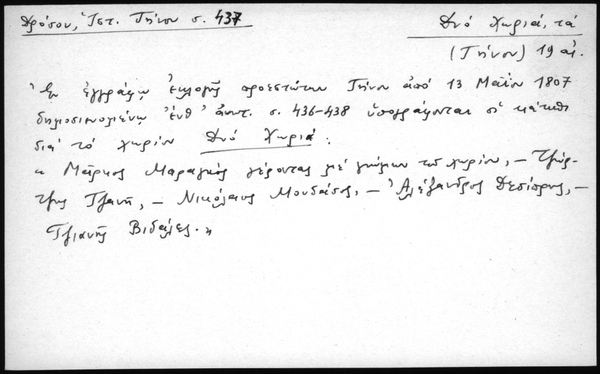 Δρόσου, Ἱστ. Τήνου σ. 437
Δυό Χωριά, τά
(Τήνου) 19 αἰ.
Ἐν ἐγγράφῳ ἐκλογῆς προεστώτων Τήνου ἀπό 13 Μαΐου 1807
δημοσιευομένῳ ἔνθ' ἀνωτ. σ. 436-438 ὑπογράφονται οἱ κάτωθι
διά τό χωρίον Δυό Χωριά:
« Μάρκος Μαραγκός γέροντας μέ γνώμην τοῦ χωρίου, – Τζώρ-
τζης Τζανῆ, – Νικόλαος Μουδάσος, – Ἀλέξανδρος Δεσίπρης, –
Τζιανῆς Βιδάλες. »